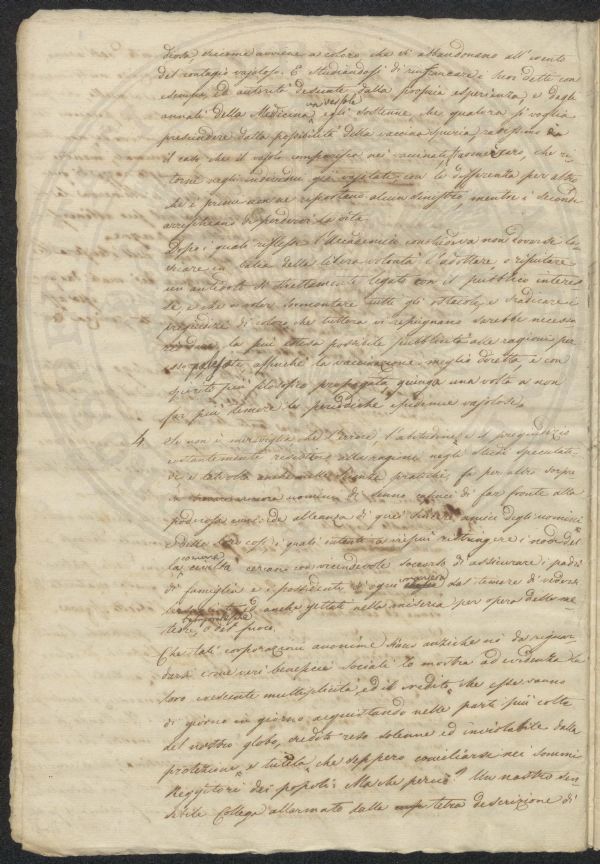 siccome avviene a coloro che si abbandonano all'evento
del contagio vajoloso. E studiandosi di rinfrancare i suoi detti con
esempi ed autorità desunte dalla propria esperienza e dagli
annali della Medicina egli sostenne che qualora si voglia
prescindere dalla possibilità della vaccina spuria, radissimo
il caso che il vajolo comparisca nei vaccinati che ri-
torni negli individui già vajolati con la differenza per altro
che i primi non ne riportano alcun sinistro, mentre i secondi
arrischiano di perdervi la vita.
Dopo i quali riflessi l'Accademico concludeva non doversi la-
sciare in balia della libera volontà l'adottare o rifiutare
un antidoto sì strettamente legato con il pubblico interes-
se, e che a voler sormontare tutti gli ostacoli, e sradicare i
pregiudizi di coloro che tuttora vi repugnano sarebbe necessa-
la più estesa possibile pubblicità alle ragioni per
affinchè la vaccinazione meglio diretta, e con
spirito più filosofico propagata giunga una volta a non
far più temere le periodiche epidemie vajolose.
4. Se non è maraviglia che l'errore l'abitudine e il pregiudizio
costantemente resistino alla ragione negli studi speculati-
vi e talvolta anche nelle scienze pratiche, fa per altro sorpre-
sa ancora uomini di senno capaci di far fronte alla
poderosa alleanza di quei sinceri amici degli uomini
e delle cose, i quali intenti a vie più restringere i nodi del
la civiltà cercano con vicendevole soccorso di assicurare i padri
di famiglia e i possidenti di ogni dal timore di vedersi
anche gettati nella miseria per opera delle me-
teore, o del fuoco.
Che tali corporazioni anonime siano anziche nò da riguar-
darsi come veri beneficii sociali lo mostra ad evidenza la
loro crescente multiplicità, ed il credito che esse vanno
di giorno in giorno acquistando nelle parti più colte
del nostro globo, credito reso solenne ed inviolabile dalla
protezione e tutela che seppero conciliarsi nei sommi
Reggitori dei popoli. Ma che perciò? Un nostro
Collega allarmato dalla tetra descrizione di